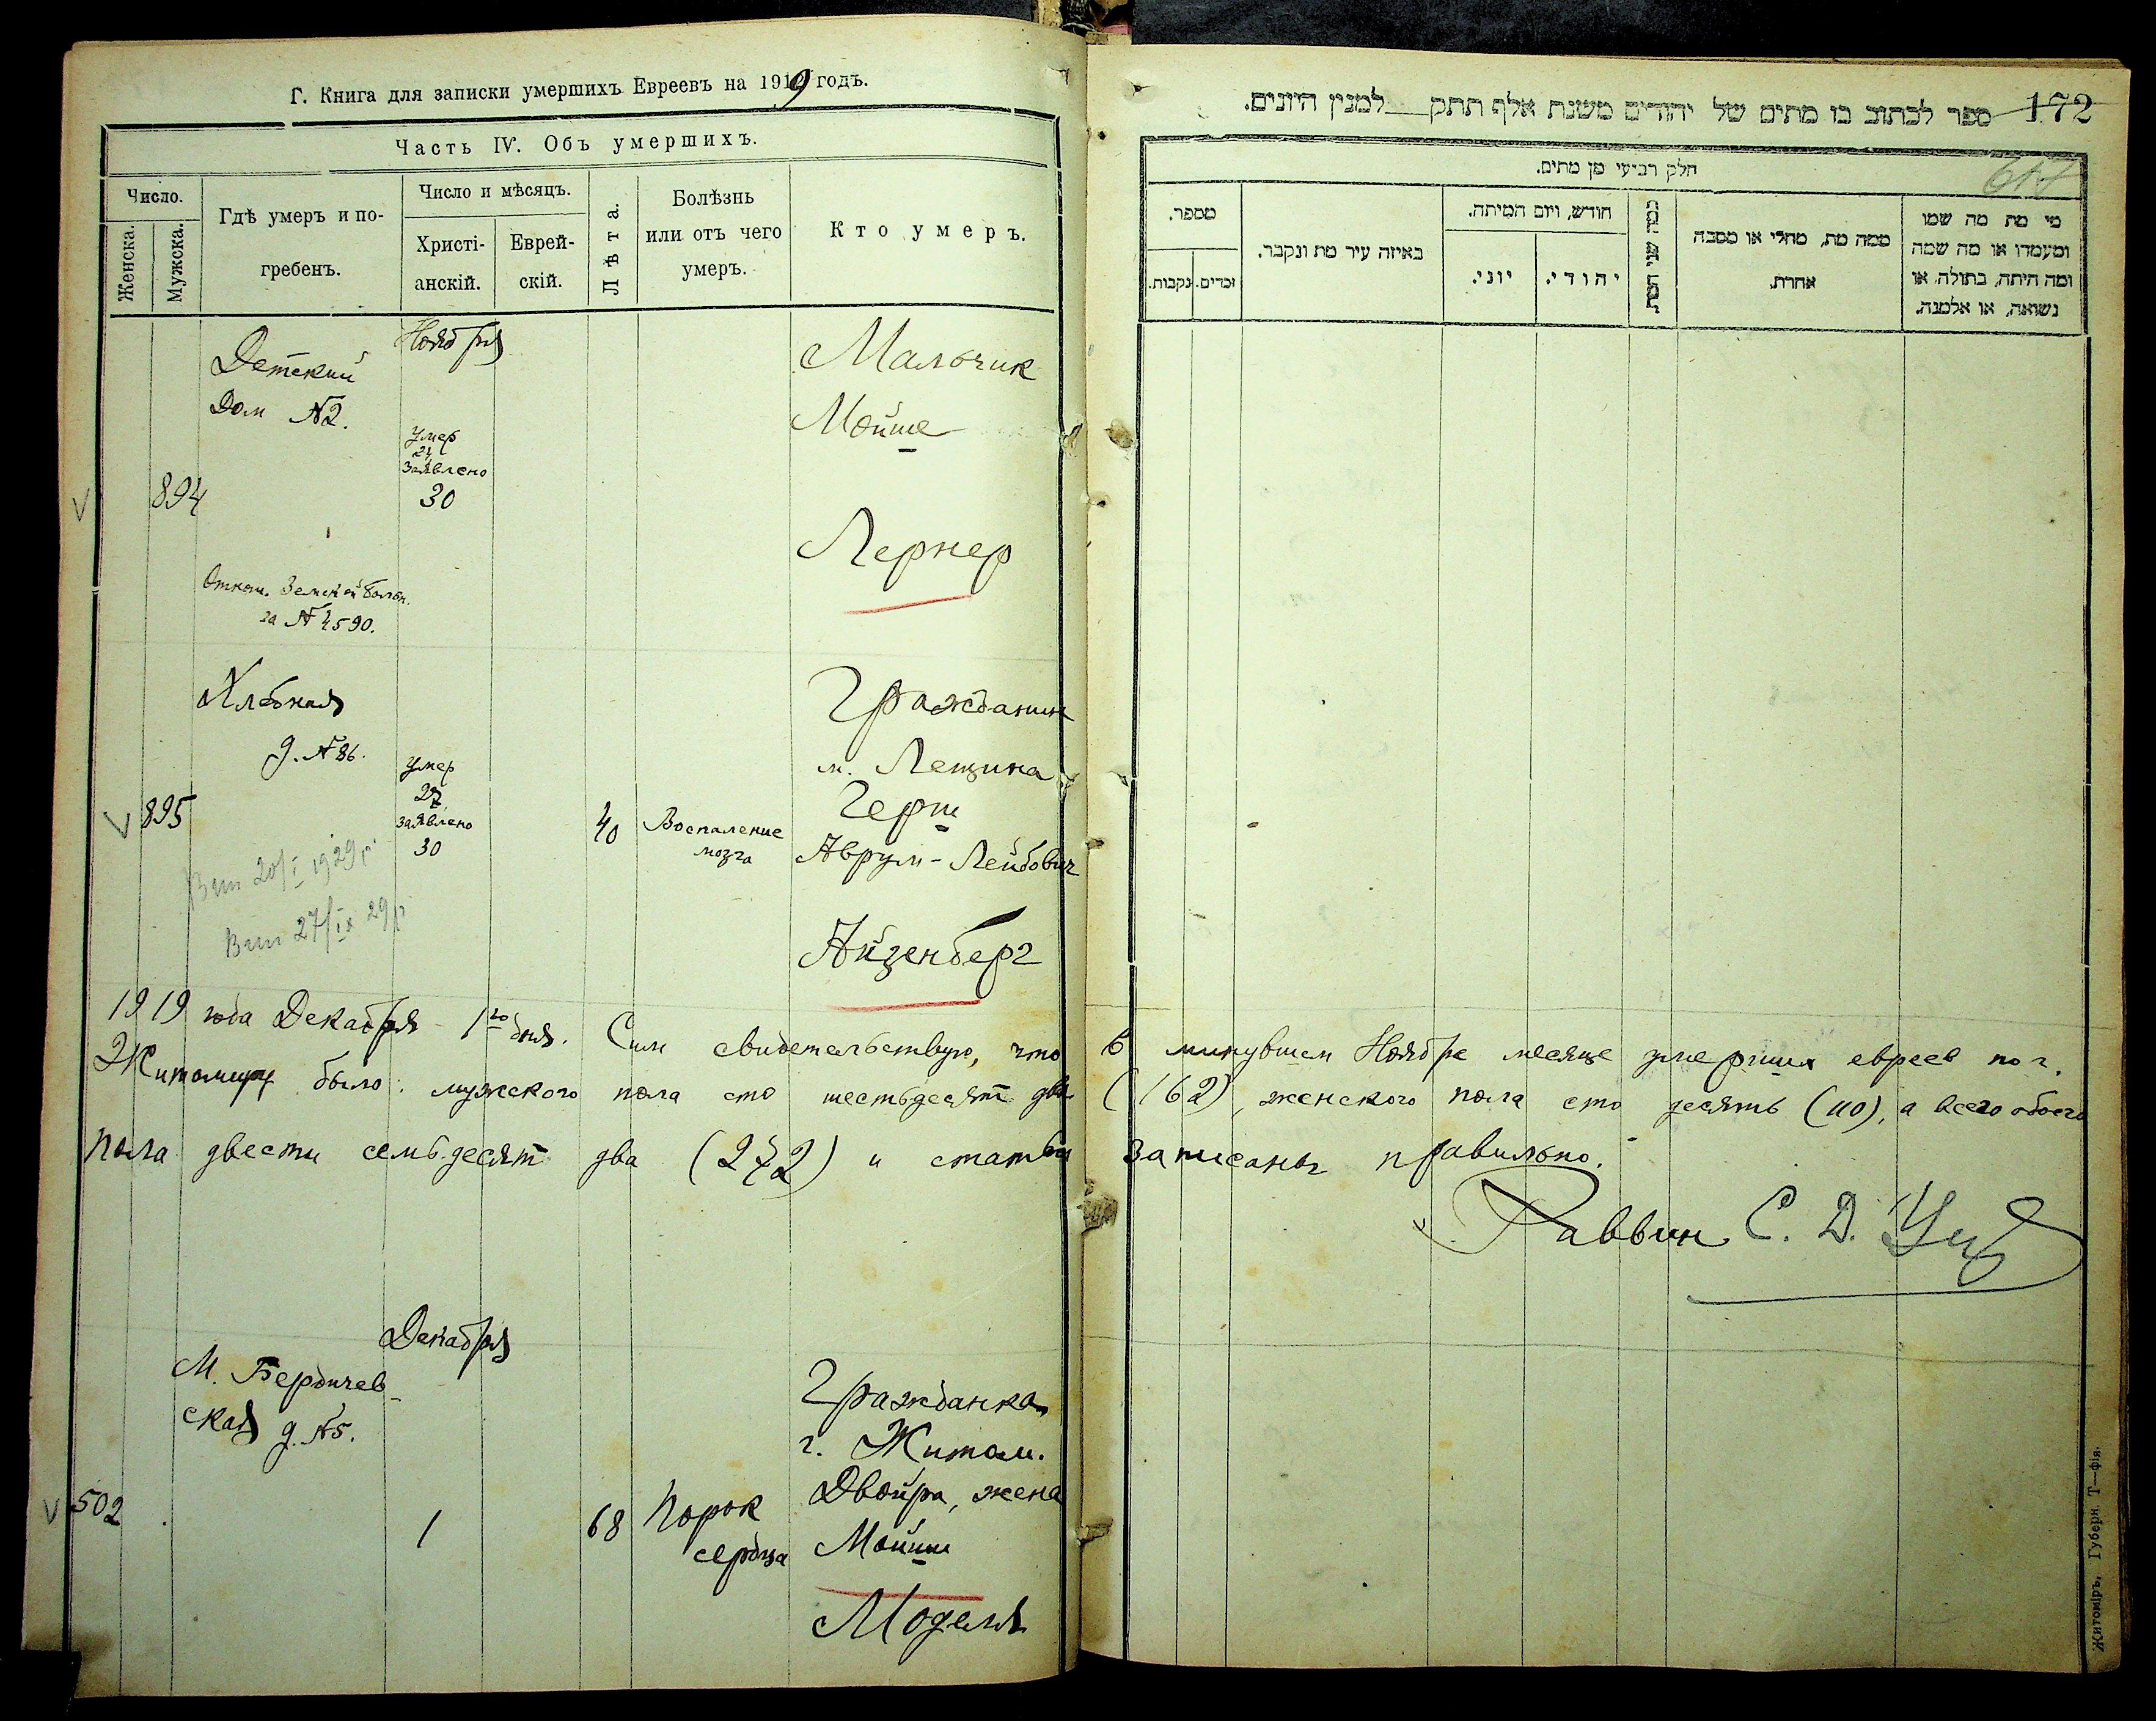 Г. Книга для записки умершихъ Евреевъ на 1919 годъ.
Часть IV. Объ умершихъ.
Число.
Женска.
Мужска.
Гдѣ умеръ и по-
гребенъ.
Число и мѣсяцъ.
Христі-
анскій.
Еврей-
скій.
Лѣта.
Болѣзнь
или отъ чего
умеръ.
Кто умеръ.
Ноября
Детский
Дом №2.
894
Умер
24
Заявлено
30
Мальчик
Мойше
Лернер
Отнош. Земской больн.
за № 4590.
Хлебная
д. №86.
895
Умер
27
Заявлено
30
40
Воспаление
мозга
Гражданин
м. Лещина
Герш
Аврум-Лейбович
Айзенберг
20/I 1929 р.
27/IX 29 р
1919 года Декабря 1го дня. Сим свидетельствую, что в минувшем Ноябре месяце умерших евреев по г.
Житомиру было: мужского пола сто шестьдесят два (162), женского пола сто десять (110), а всего обоего
пола двести семьдесят два (272) и статьи записаны правильно.
Раввин С. Д.
Декабря
М. Бердичев-
ская д. №5.
502
1
68
Порок
сердца
Гражданка
г. Житом.
Двойра, жена
Мойши
Моделя
172
ספר לכתוב בו מתים של יהודים משנת אלף תתק למנין היונים.
617
חלק רביעי מן מתים.
מספר.
נקבות.
זכרים.
באיזה עיר מת ונקבר.
חודש, ויום המיתה.
יוני.
יהודי.
כמה שני המת
ממה מת, מחלי או מסבה
אחרת.
מי מת מה שמו
ומעמדו או מה שמה
ומה היתה, בתולה, או
נשואה, או אלמנה.
Житоміръ, Губерн. Т—фія.